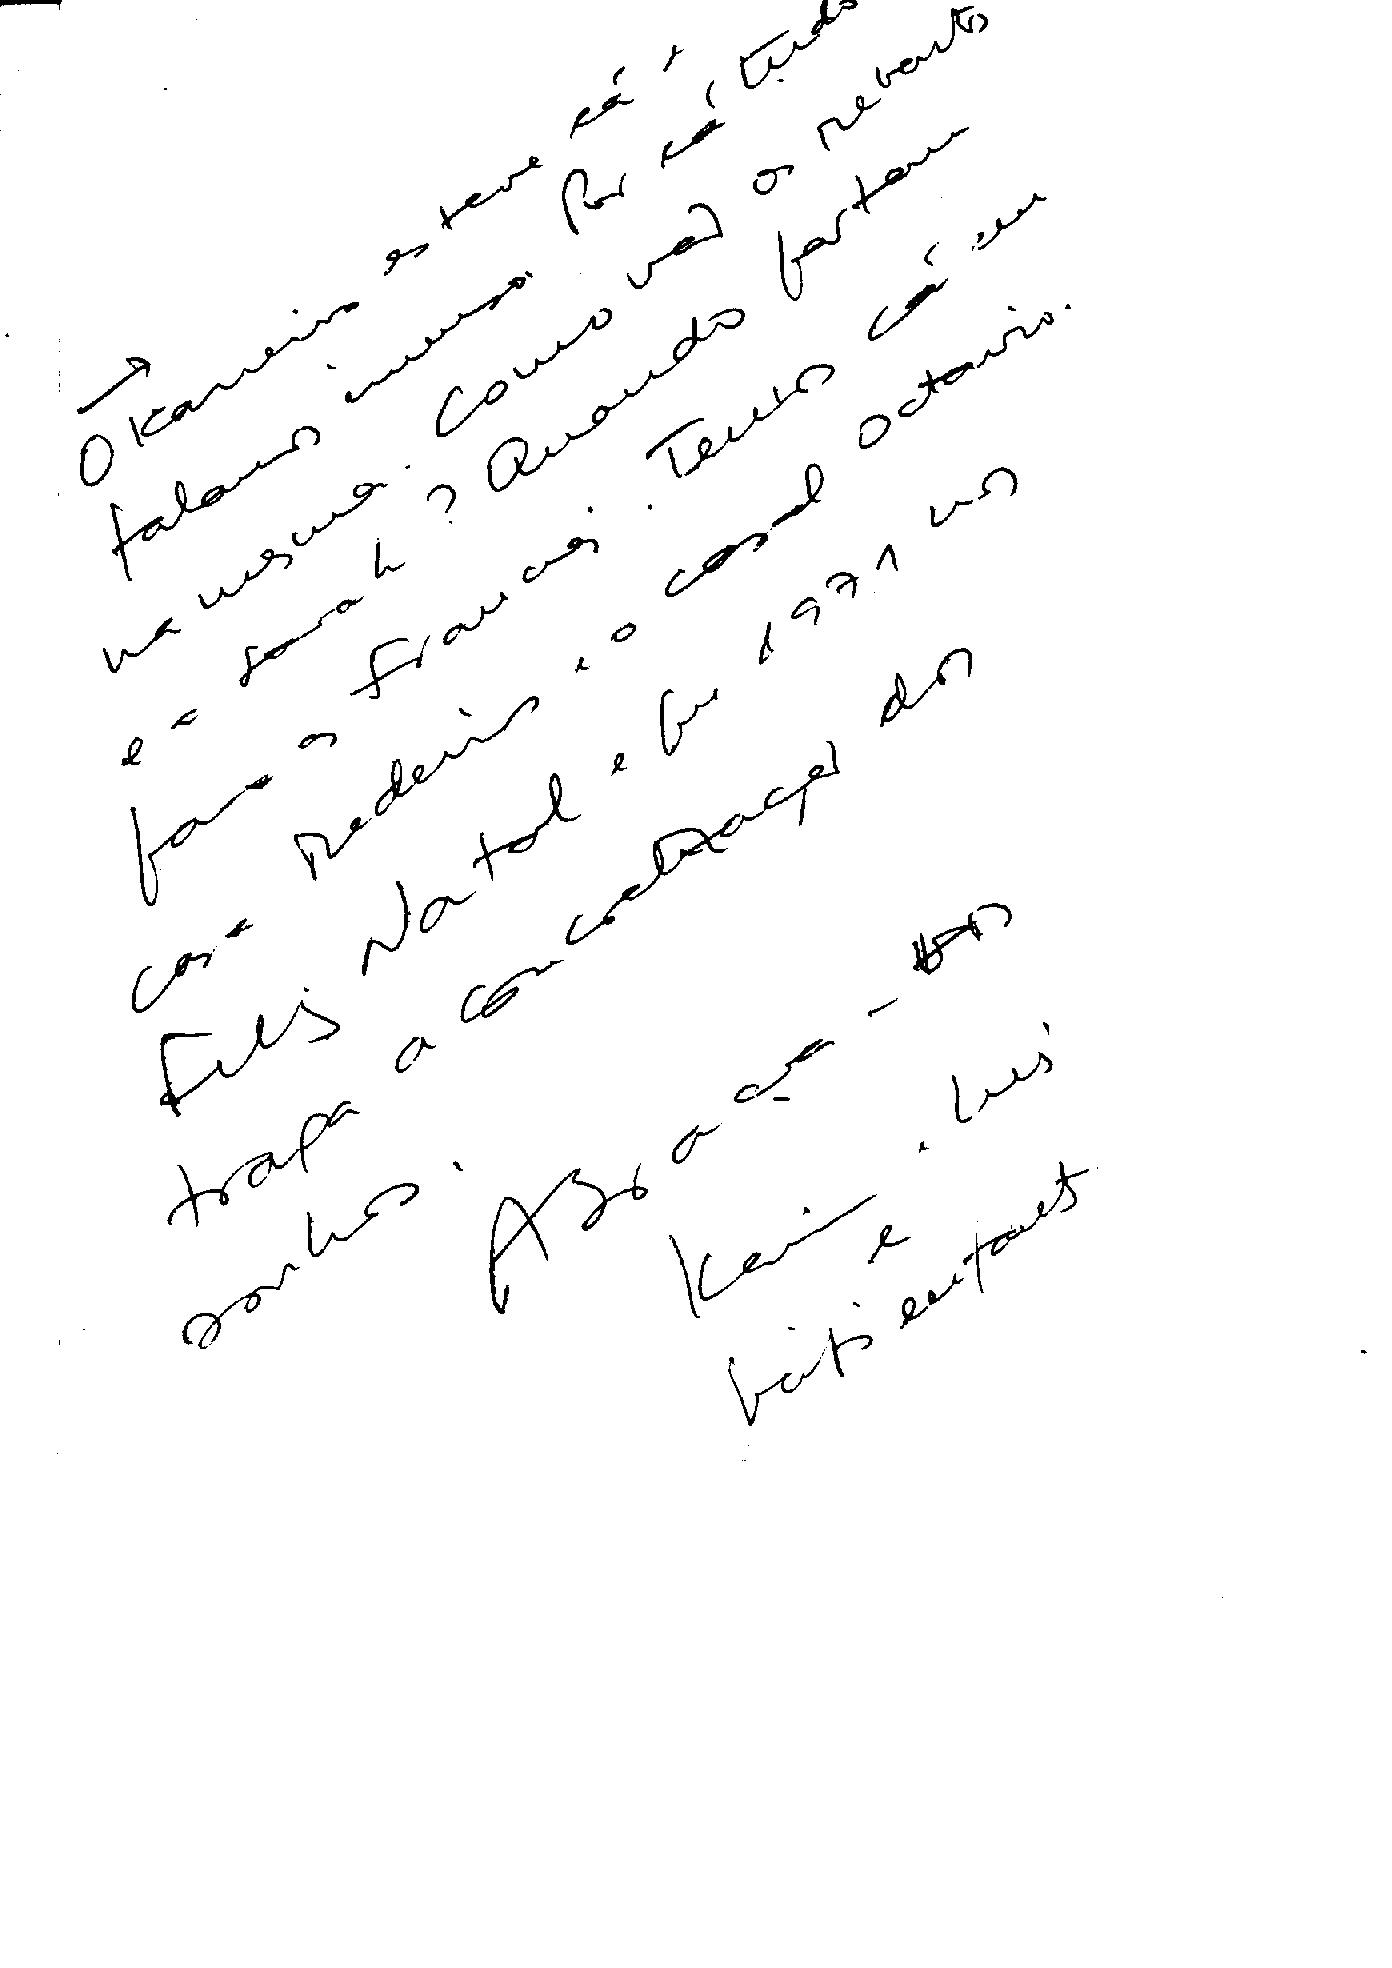 O Karneiro esteve cá e
falamos imenso. Por cá tudo
na mesma. Como vão os rebentos
e a Sarah? Quando partem
para a França. Temos cá em
casa Medeiros e o casal Octavio.
Feliz Natal e que 1971 nos
traga a concretização dos
sonhos.
Abraça-os
e Luis
Karin e